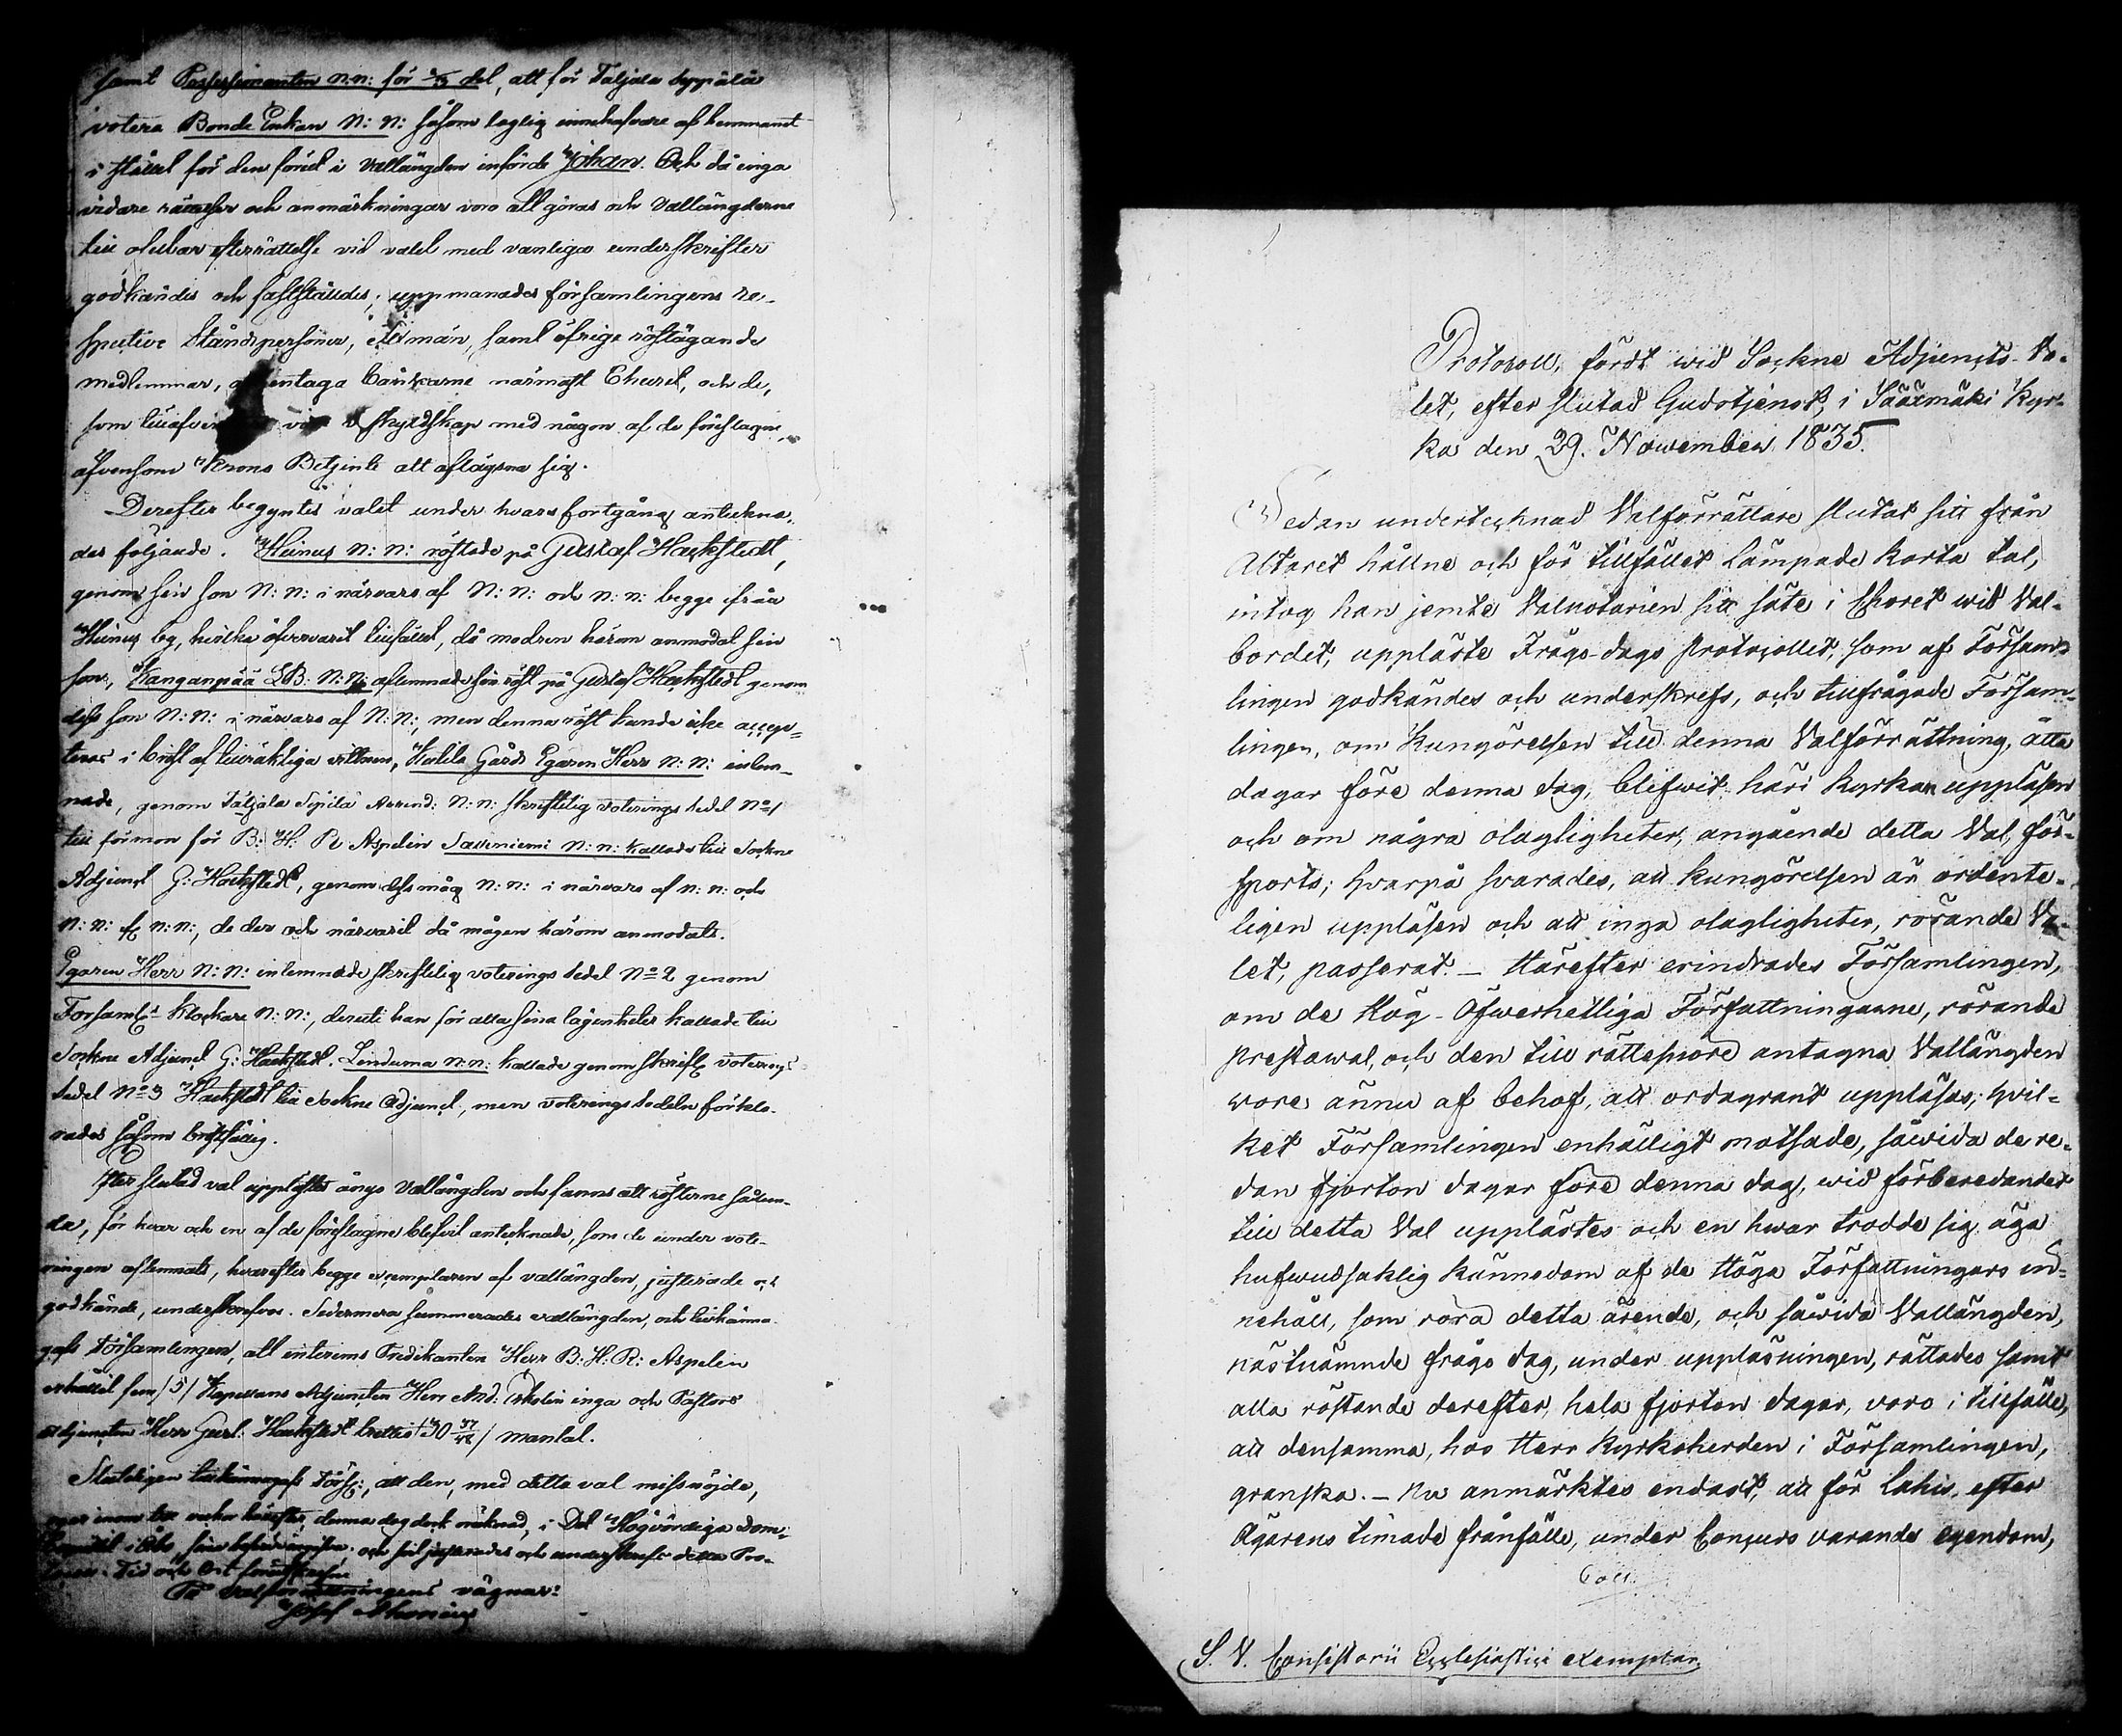 samt Possessionanten N:n: för 2/3 del, att för Taljala Seppälä
votera Bonde Enkan N: N: såsom laglig innehafvare af hemmanet
i stället för den förut i Vallängden införde Johan. Och då inga
vidare rättelser och anmärkningar voro att göras och Vallängderne
till ofelbar efterrättelse vid valet med vanliga underskrifter
godkändes och fastställdes; uppmanades församlingens re-
spective Ståndspersoner, Allmän, samt öfrige röstägande
medlemmar, att intaga bänkarne närmast Choret, och de,
som skyldskap med någon af de föreslagne,
äfvensom Krono Betjente att aflägsna sig.
Derefter begyntes valet under hvars fortgång anteckna-
des följande. Heinus N: N: röstade på Gustaf Hackstedt,
genom sin son N: N: i närvaro af N: N: och N: N: begge från
Heinus by, hvilka öfvervarit tillfället, då modren härom anmodat sin
son, Kanganpää SB. N: N: aflemnade sin röst på Gustaf Hackstedt genom
dess son N: N: i närvaro af N: N:, men denna röst kunde icke accep-
teras i brist af tillräkliga vittnen, Kalila Gårds Egaren Herr N: N: inlem-
nade, genom Taljala Sipilä Arrend: N: N: skriftelig voterings sedel No 1
till förmon för B: H: R Aspelin Sauniemi N: N: kallade till Sockne
Adjunct G: Hackstedt, genom dess måg N: N: i närvaro af N: N: och
N: N: N: N:, de der och närvarit då mågen härom anmodats.
Egaren Herr N: N: inlemnade skriftelig voterings sedel No 2 genom
Församls Klockare N: N:, deruti han för alla sina lägenheter kallade till
Sockne Adjunct G: Hackstedt. Linduma N: N: kallade genom skriftl voterings
sedel No 3 Hackstedt till Sockne Adjunct, men voterings sedeln förkla-
rades såsom bristfällig.
Efter slutad val upplästes ånyo Vallängden och fanns att rösterne sålun-
da, för hvar och en af de föreslagne blifvit antecknade, som de under vote-
ringen aflemnats, hvarefter begge exemplaren af vallängden, justerade och
godkände, underskrefvos. Sedermera summerades vallängden, och tillkänna-
gafs Församlingen, att interims Predikanten Herr B: H: R: Aspelin
erhållit fem /5/ Kapellans Adjuncten Herr And: Eskolin inga och Pastors
Adjuncten Herr Gust: Hackstedt trettio /30 37/48/ mantal.
Sluteligen tillkännagafs Förs:, att den, med detta val missnöjde,
eger inom tre veckor härefter, denna dag dock oräknad, i Det Högvördiga Dom-
Capitlet i Åbo, sina besvär anföra. och sist justerades och underskrefs detta Pro-
tocoll. Tid och Ort förutskrefne
På Valförrättningens vägnar:
Josef

Protocoll, fördt wid Sockne Adjuncts Va-
let, efter slutad Gudstjenst, i Sääxmäki Kyr-
ka den 29. November 1835.
Sedan undertecknad Valförrättare slutat sitt från
Altaret hållne och för tillfället lämpade korta tal,
intog han jemte Valnotarien sitt säte i Choret wid Val-
bordet, uppläste Frågo-dags Protocollet, som af Försam-
lingen godkändes och underskrefs, och tillfrågade Försam-
lingen, om Kungörelsen till denna Valförrättning, åtta
dagar före denna dag, blifwit här i Kyrkan uppläsen
och om några olagligheter, angående detta Val, för-
sports; hvarpå svarades, att kungörelsen är ordente-
ligen uppläsen och att inga olagligheter, rörande Va-
let, passerat. – Härefter erindrades Församlingen,
om de Hög-Öfwerhetliga Författningarne, rörande
prestawal, och den till rättesnöre antagna Vallängden
wore ännu af behof, att ordagrant uppläsas; hvil-
ket Församlingen enhälligt motsade, såwida de re-
dan fjorton dagar före denna dag, wid förberedandet
till detta Val upplästes och en hwar trodde sig äga
hufwudsaklig kännedom af de Höga Författningars in-
nehåll, som röra detta ärende, och såwida Vallängden,
nästnämnde frågo dag, under uppläsningen, rättades samt
alla röstande derefter, hela fjorton dagar, voro i tillfälle,
att densamma, hos Herr Kyrkoherden i Församlingen,
granska. – Nu anmärktes endast, att för Lahis, efter
Ägarens timade frånfälle, under Concurs varande egendom,
Coll.
S. V. Consistorii Ecclesiastici exemplar.